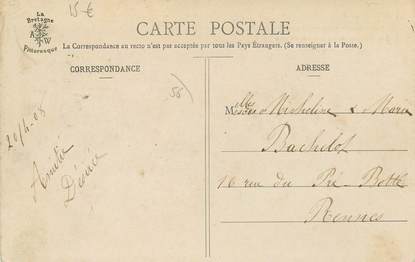 La
Bretagne
A W
Pittoresque
15 €
CARTE POSTALE
La Correspondance au recto n'est pas acceptée par tous les Pays Étrangers. (Se renseigner à la Poste.)
CORRESPONDANCE
ADRESSE
20/4-08
Amitié
Désirée
Micheline & Maria
Bachelot
16 rue du Pré-Botté
Rennes